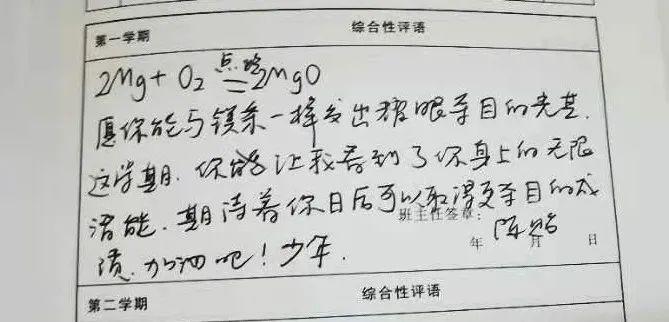 第一学期 综合性评语
2Mg+O₂ 点燃 = 2MgO
愿你能与镁条一样发出耀眼夺目的光芒.
这学期.你能让我看到了你身上的无限
潜能.期待着你日后可以取得更夺目的成
绩.加油吧!少年.
班主任签章:
陈
年 月 日
第二学期 综合性评语